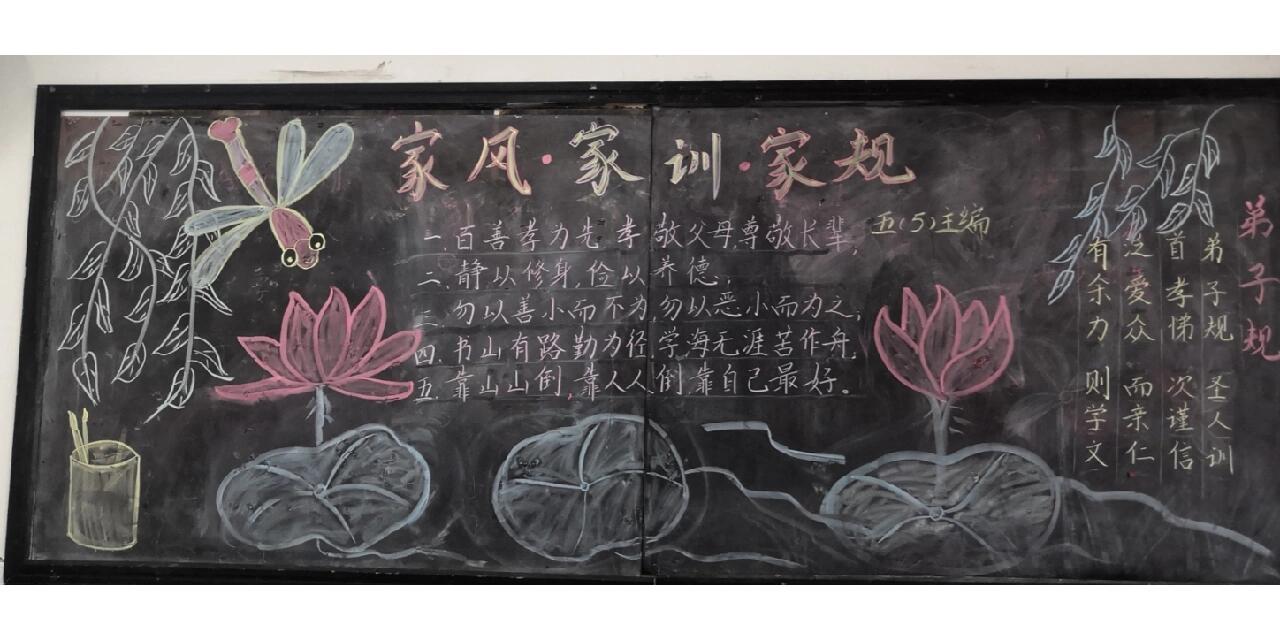 家风·家训·家规
五(5)主编
一.百善孝为先 孝敬父母尊敬长辈;
二.静以修身,俭以养德;
三.勿以善小而不为,勿以恶小而为之;
四.书山有路勤为径,学海无涯苦作舟,
五.靠山山倒,靠人人倒,靠自己最好。
弟子规
弟子规 圣人训
首孝悌 次谨信
泛爱众 而亲仁
有余力 则学文